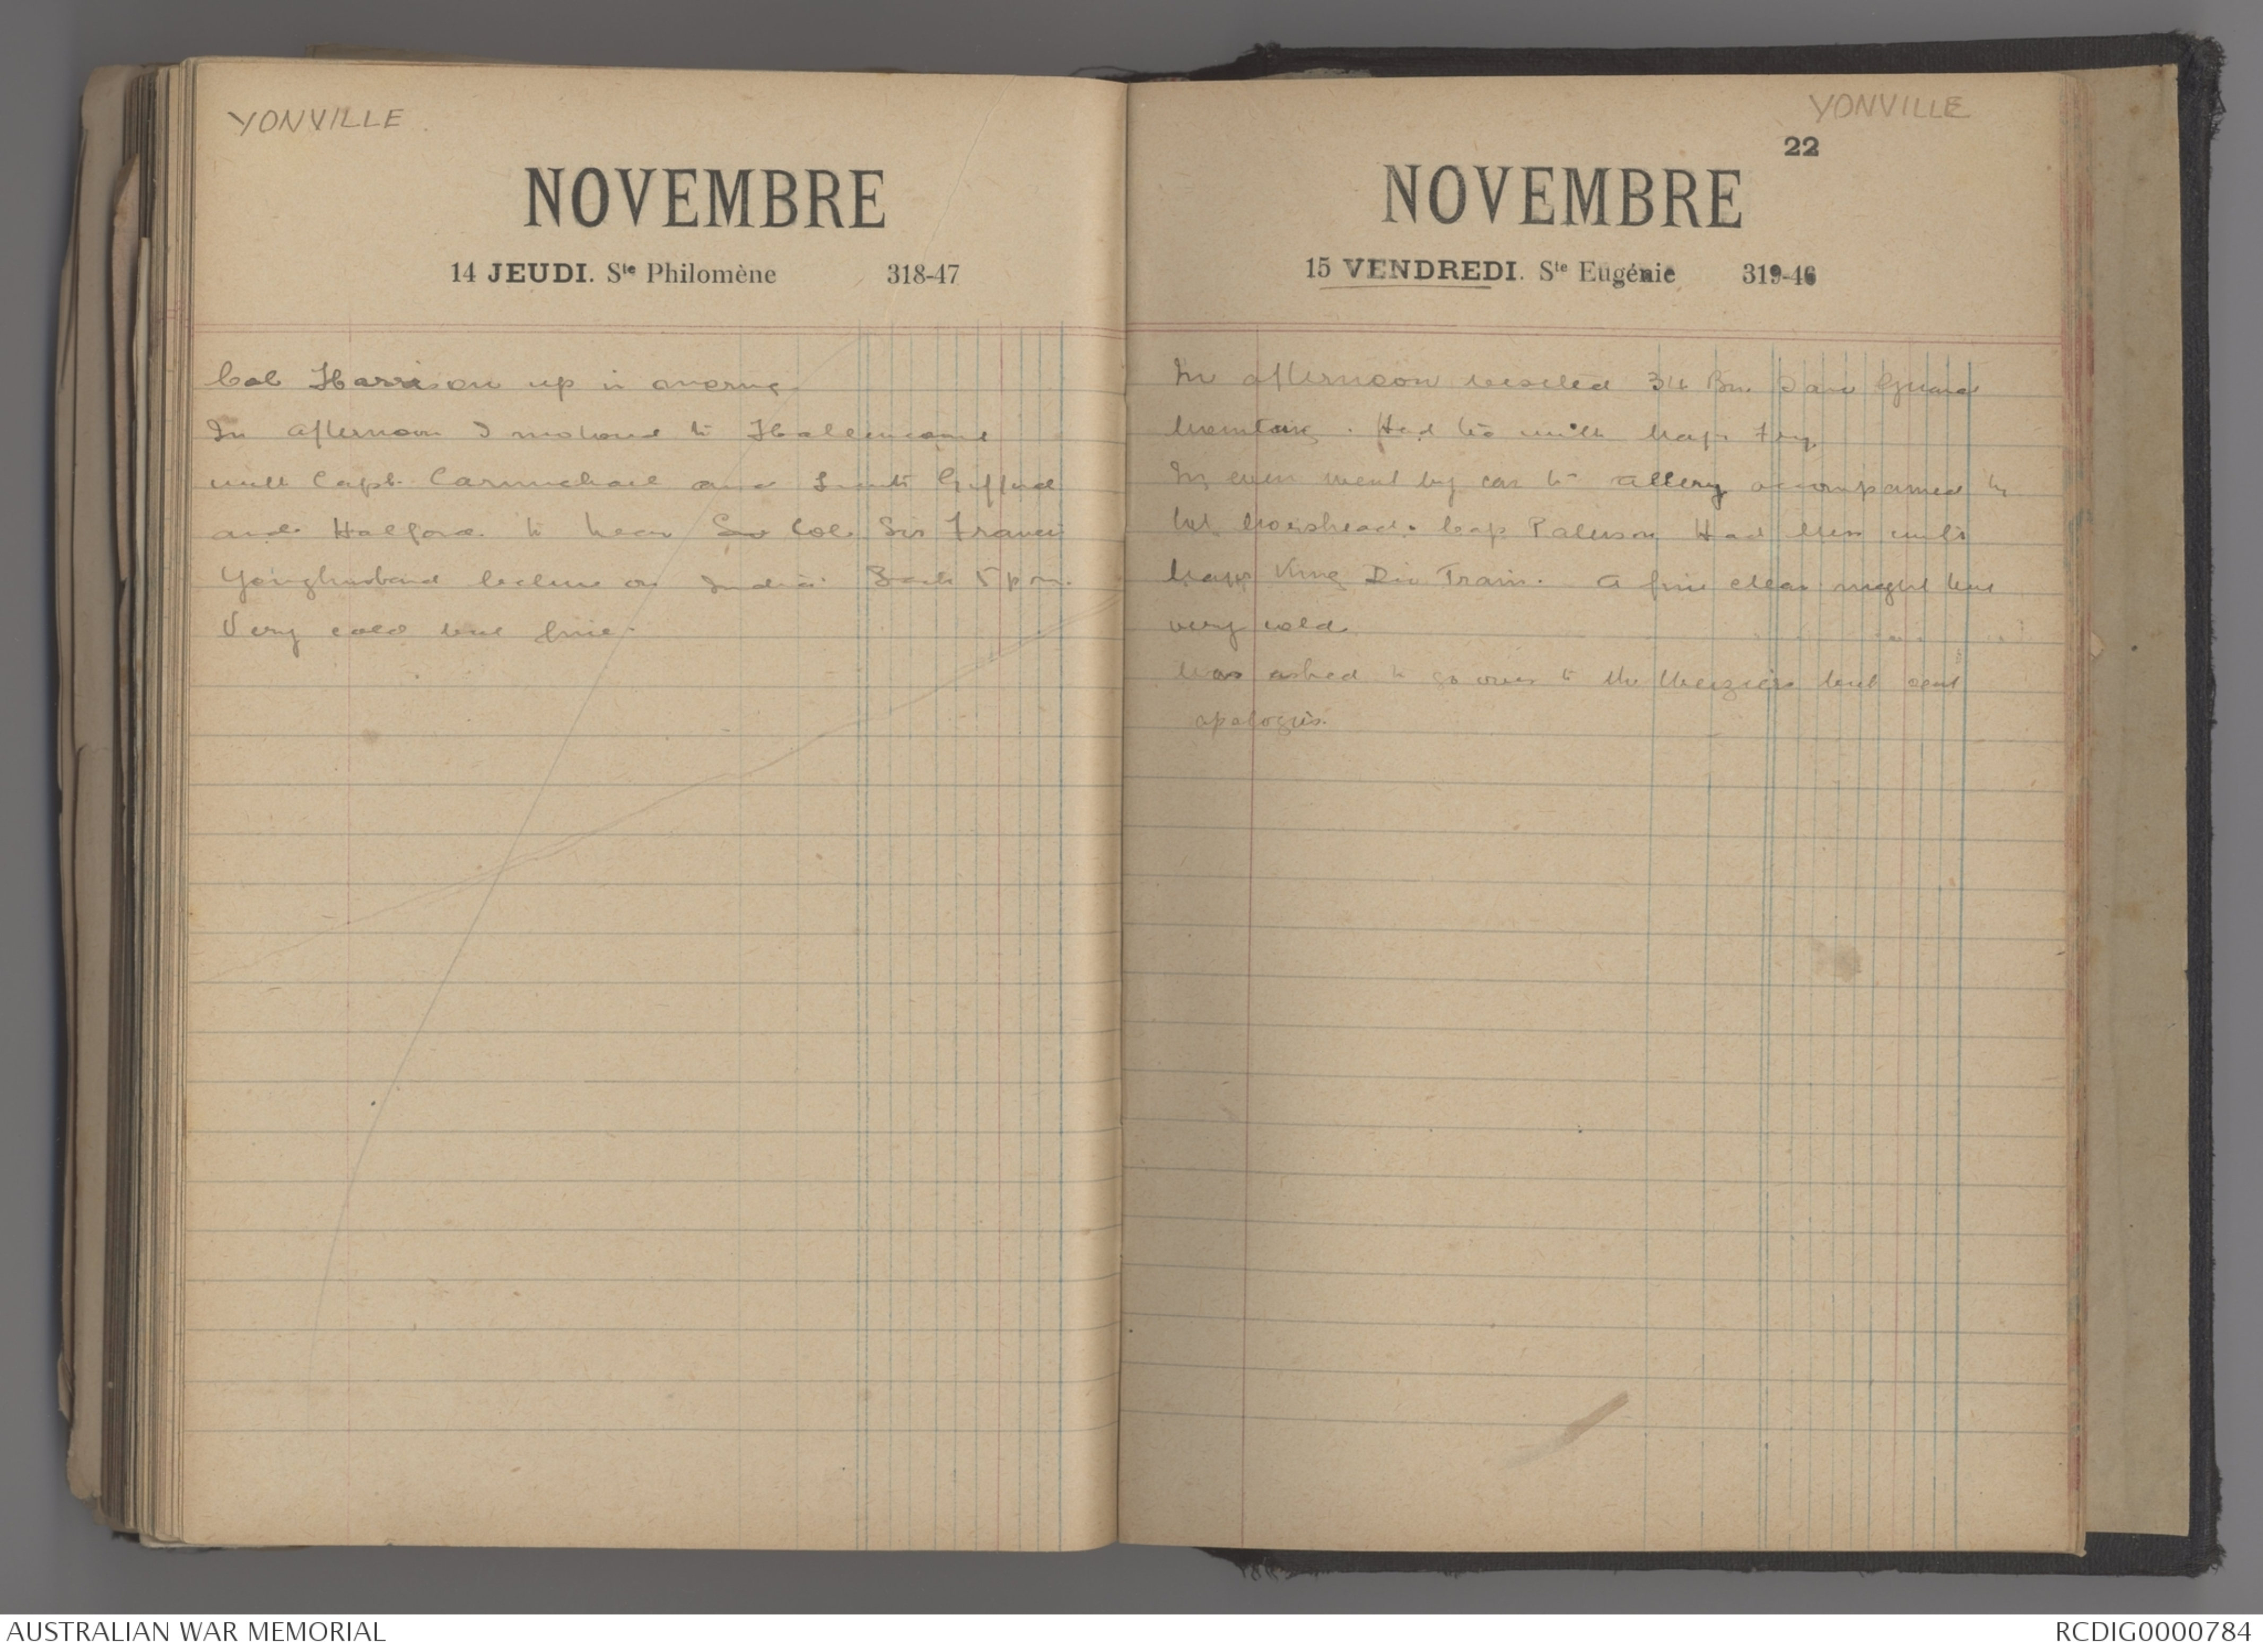 YONVILLE
NOVEMBRE
14 JEUDI. Ste Philomène 318-47
Col Harrison up in
In afternoon I motored to Hallencourt
with Capt. Carmichael and Lieuts Gifford
and Halford to hear Col. Sir Francis
Younghusband lecture on India. Back 5 pm.
Very cold but fine.
YONVILLE
22
NOVEMBRE
15 VENDREDI. Ste Eugénie 319-46
In afternoon visited 34 Bn. Saw Guard
Mounting. Had tea with Major Fry
In even went by car to Allery accompanied by
Lt. Morshead. Capt Paterson Had Mess with
Major King Div Train. A fine clear night but
very cold
Was asked to go over to the but sent
apologies.
AUSTRALIAN WAR MEMORIAL
RCDIG0000784